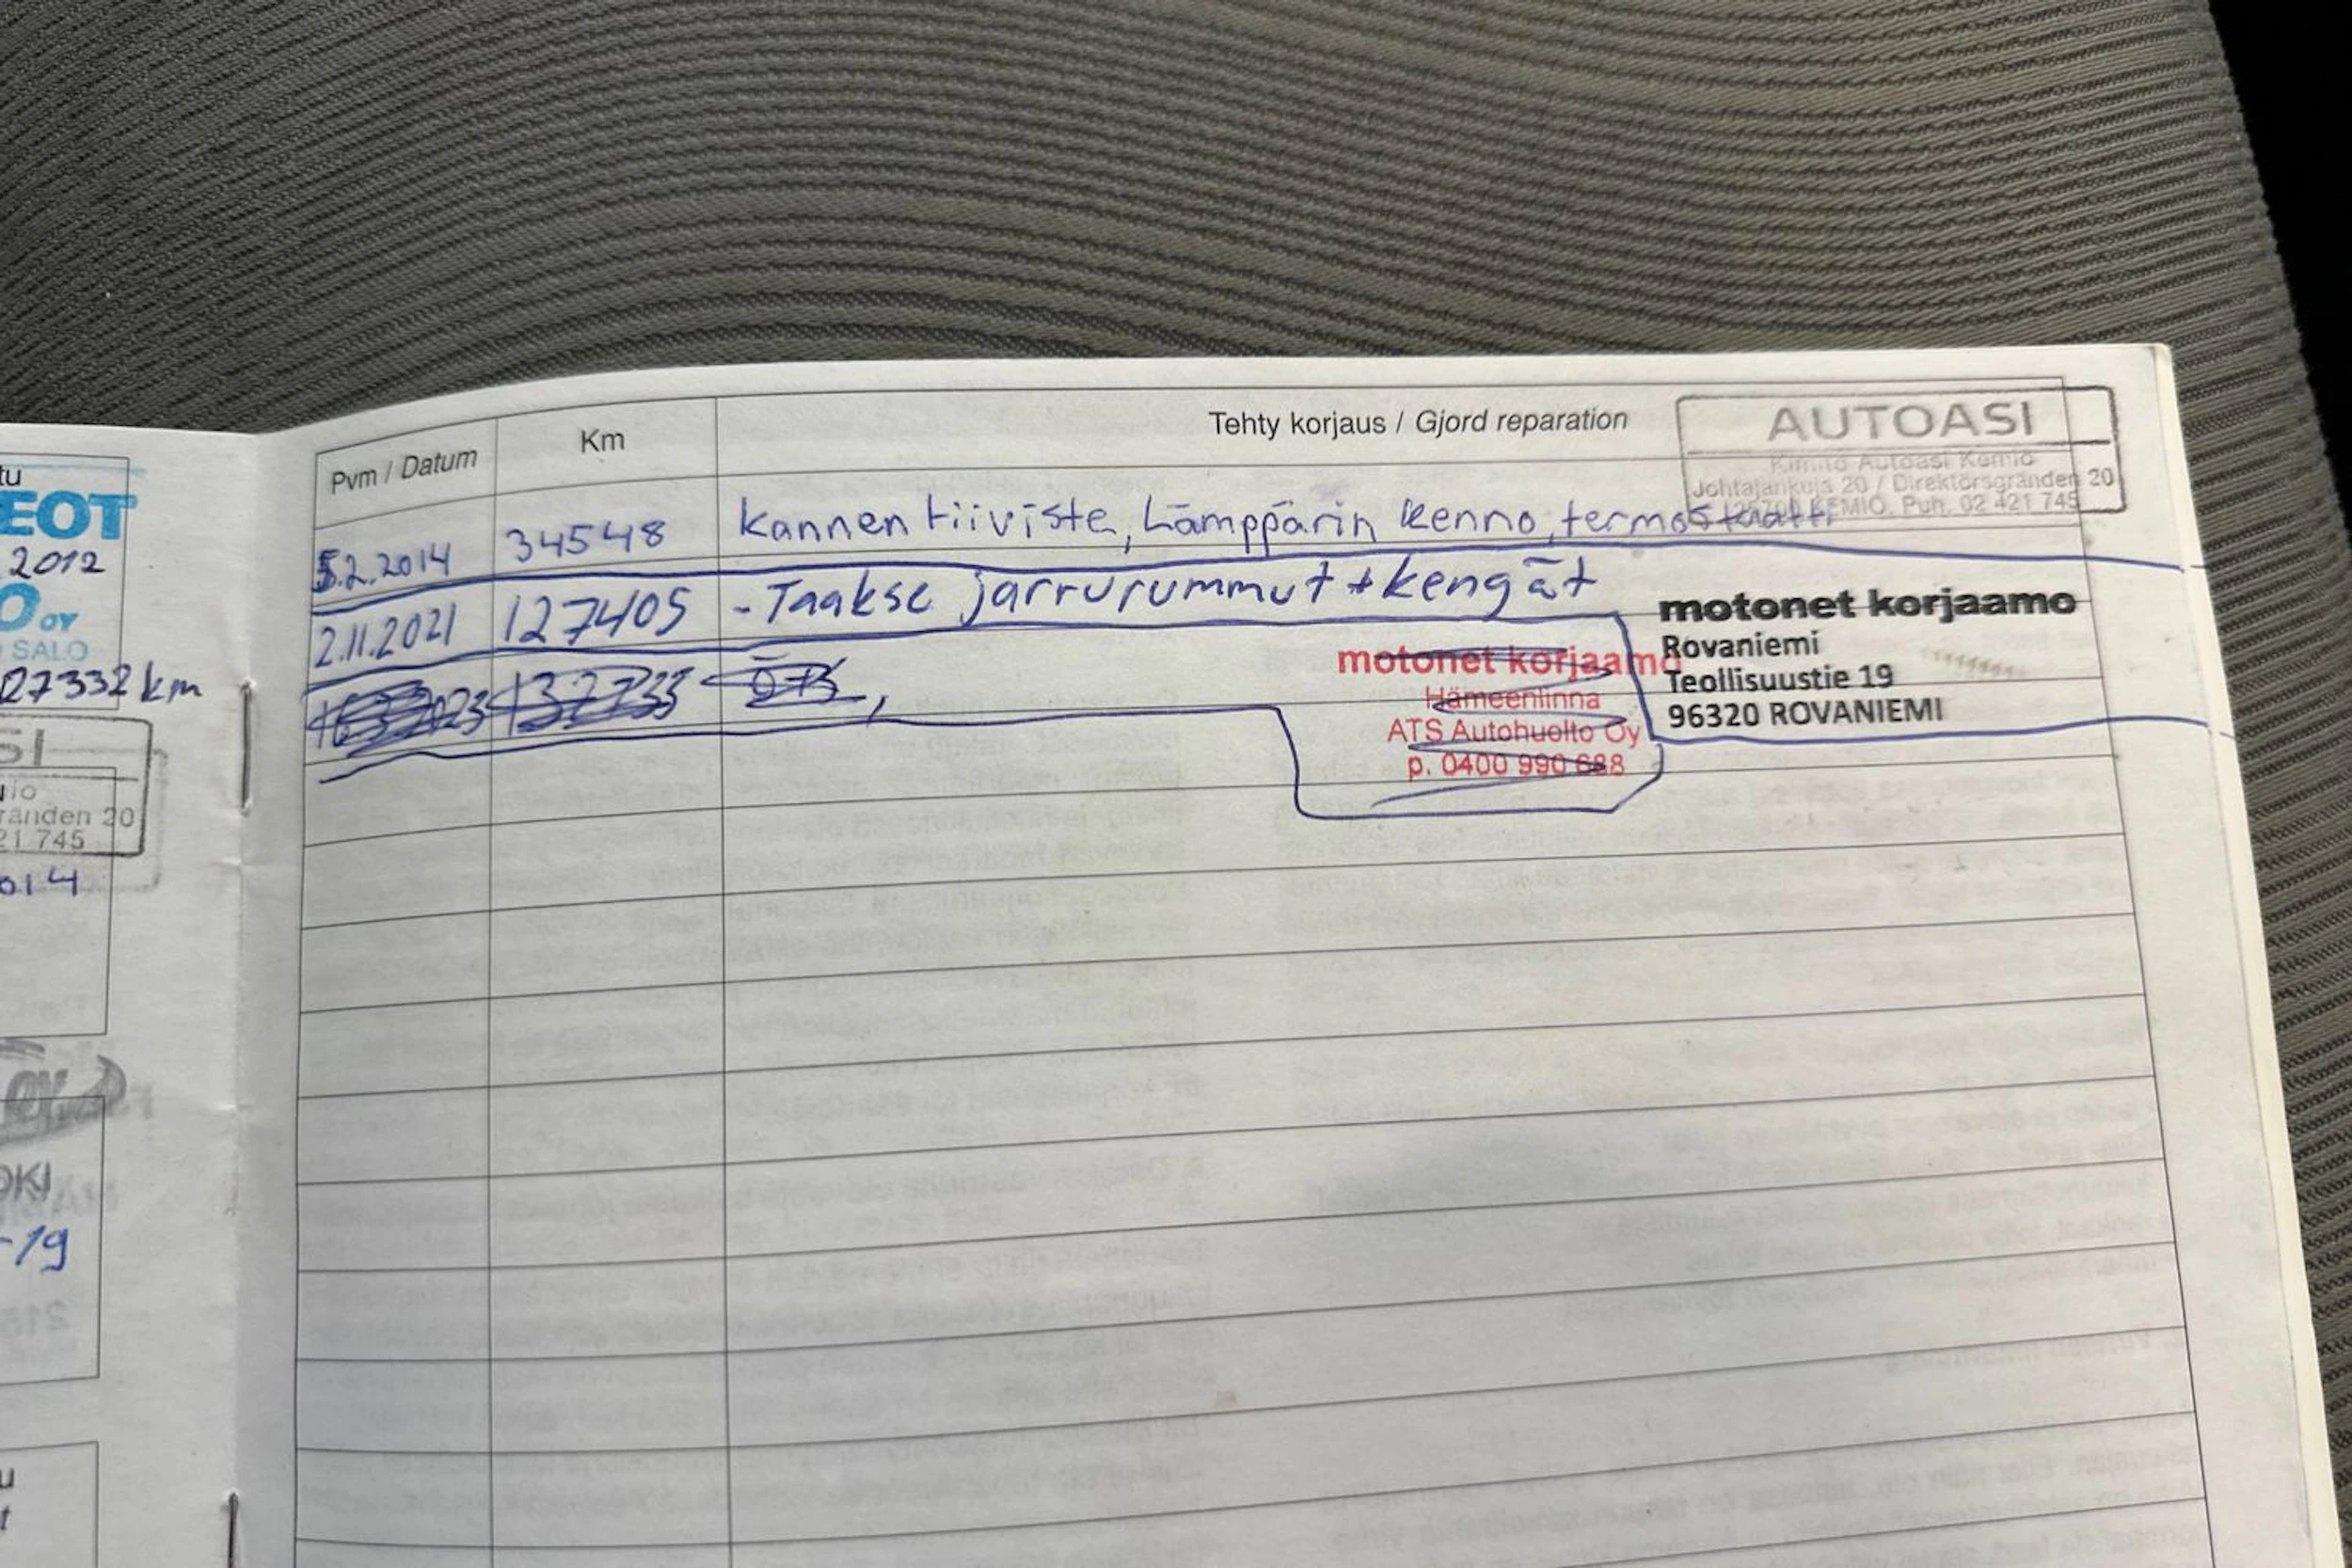 tu
EOT
2012
O OY
SALO
27332 km
SI
io
ränden 20
21 745
014
OKI
-19
u
t
Pvm / Datum
Km
Tehty korjaus / Gjord reparation
AUTOASI
Kimito Autoasi Kemio
Johtajankuja 20 / Direktörsgränden 20
KEMIO. Puh. 02 421 745
5.2.2014 34548 Kannen tiiviste, Lämppärin Kenno, termostaatti
2.11.2021 127405 - Taakse jarrurummut + kengät
motonet korjaamo
Rovaniemi
Teollisuustie 19
96320 ROVANIEMI
motonet korjaamo
Hämeenlinna
ATS Autohuolto Oy
p. 0400 990 688